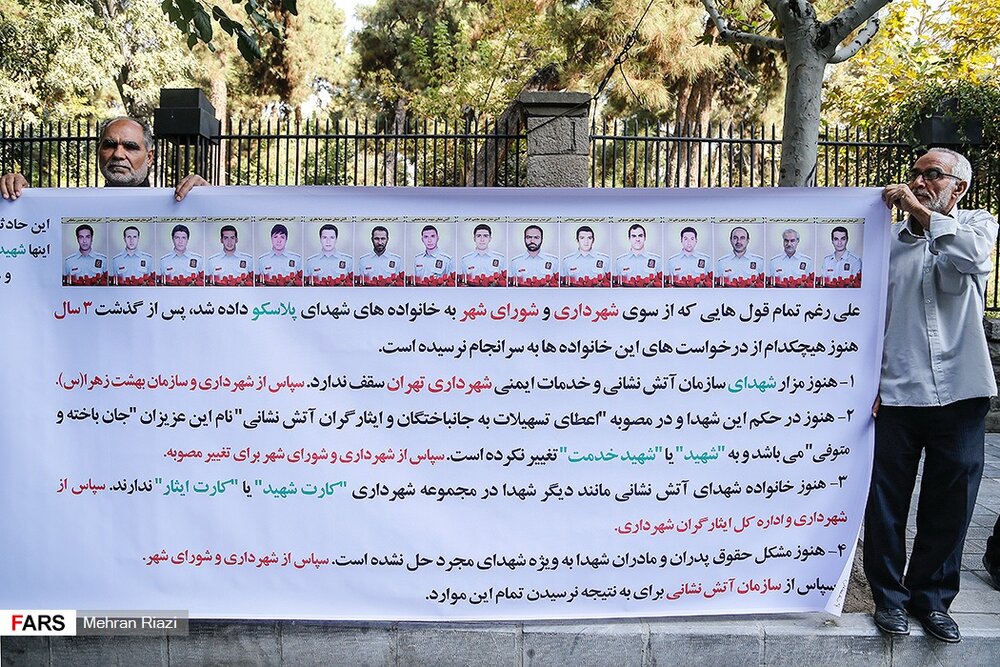 این حادثه
اینها شهید
و
علی رغم تمام قول هایی که از سوی شهرداری و شورای شهر به خانواده های شهدای پلاسکو داده شد، پس از گذشت ۳ سال
هنوز هیچکدام از درخواست های این خانواده ها به سرانجام نرسیده است.
۱- هنوز مزار شهدای سازمان آتش نشانی و خدمات ایمنی شهرداری تهران سقف ندارد. سپاس از شهرداری و سازمان بهشت زهرا(س).
۲- هنوز در حکم این شهدا و در مصوبه "اعطای تسهیلات به جانباختگان و ایثارگران آتش نشانی" نام این عزیزان "جان باخته و
متوفی" می باشد و به "شهید" یا "شهید خدمت" تغییر نکرده است. سپاس از شهرداری و شورای شهر برای تغییر مصوبه.
۳- هنوز خانواده شهدای آتش نشانی مانند دیگر شهدا در مجموعه شهرداری "کارت شهید" یا "کارت ایثار" ندارند. سپاس از
شهرداری و اداره کل ایثارگران شهرداری.
۴- هنوز مشکل حقوق پدران و مادران شهدا به ویژه شهدای مجرد حل نشده است. سپاس از شهرداری و شورای شهر.
سپاس از سازمان آتش نشانی برای به نتیجه نرسیدن تمام این موارد.
FARS Mehran Riazi